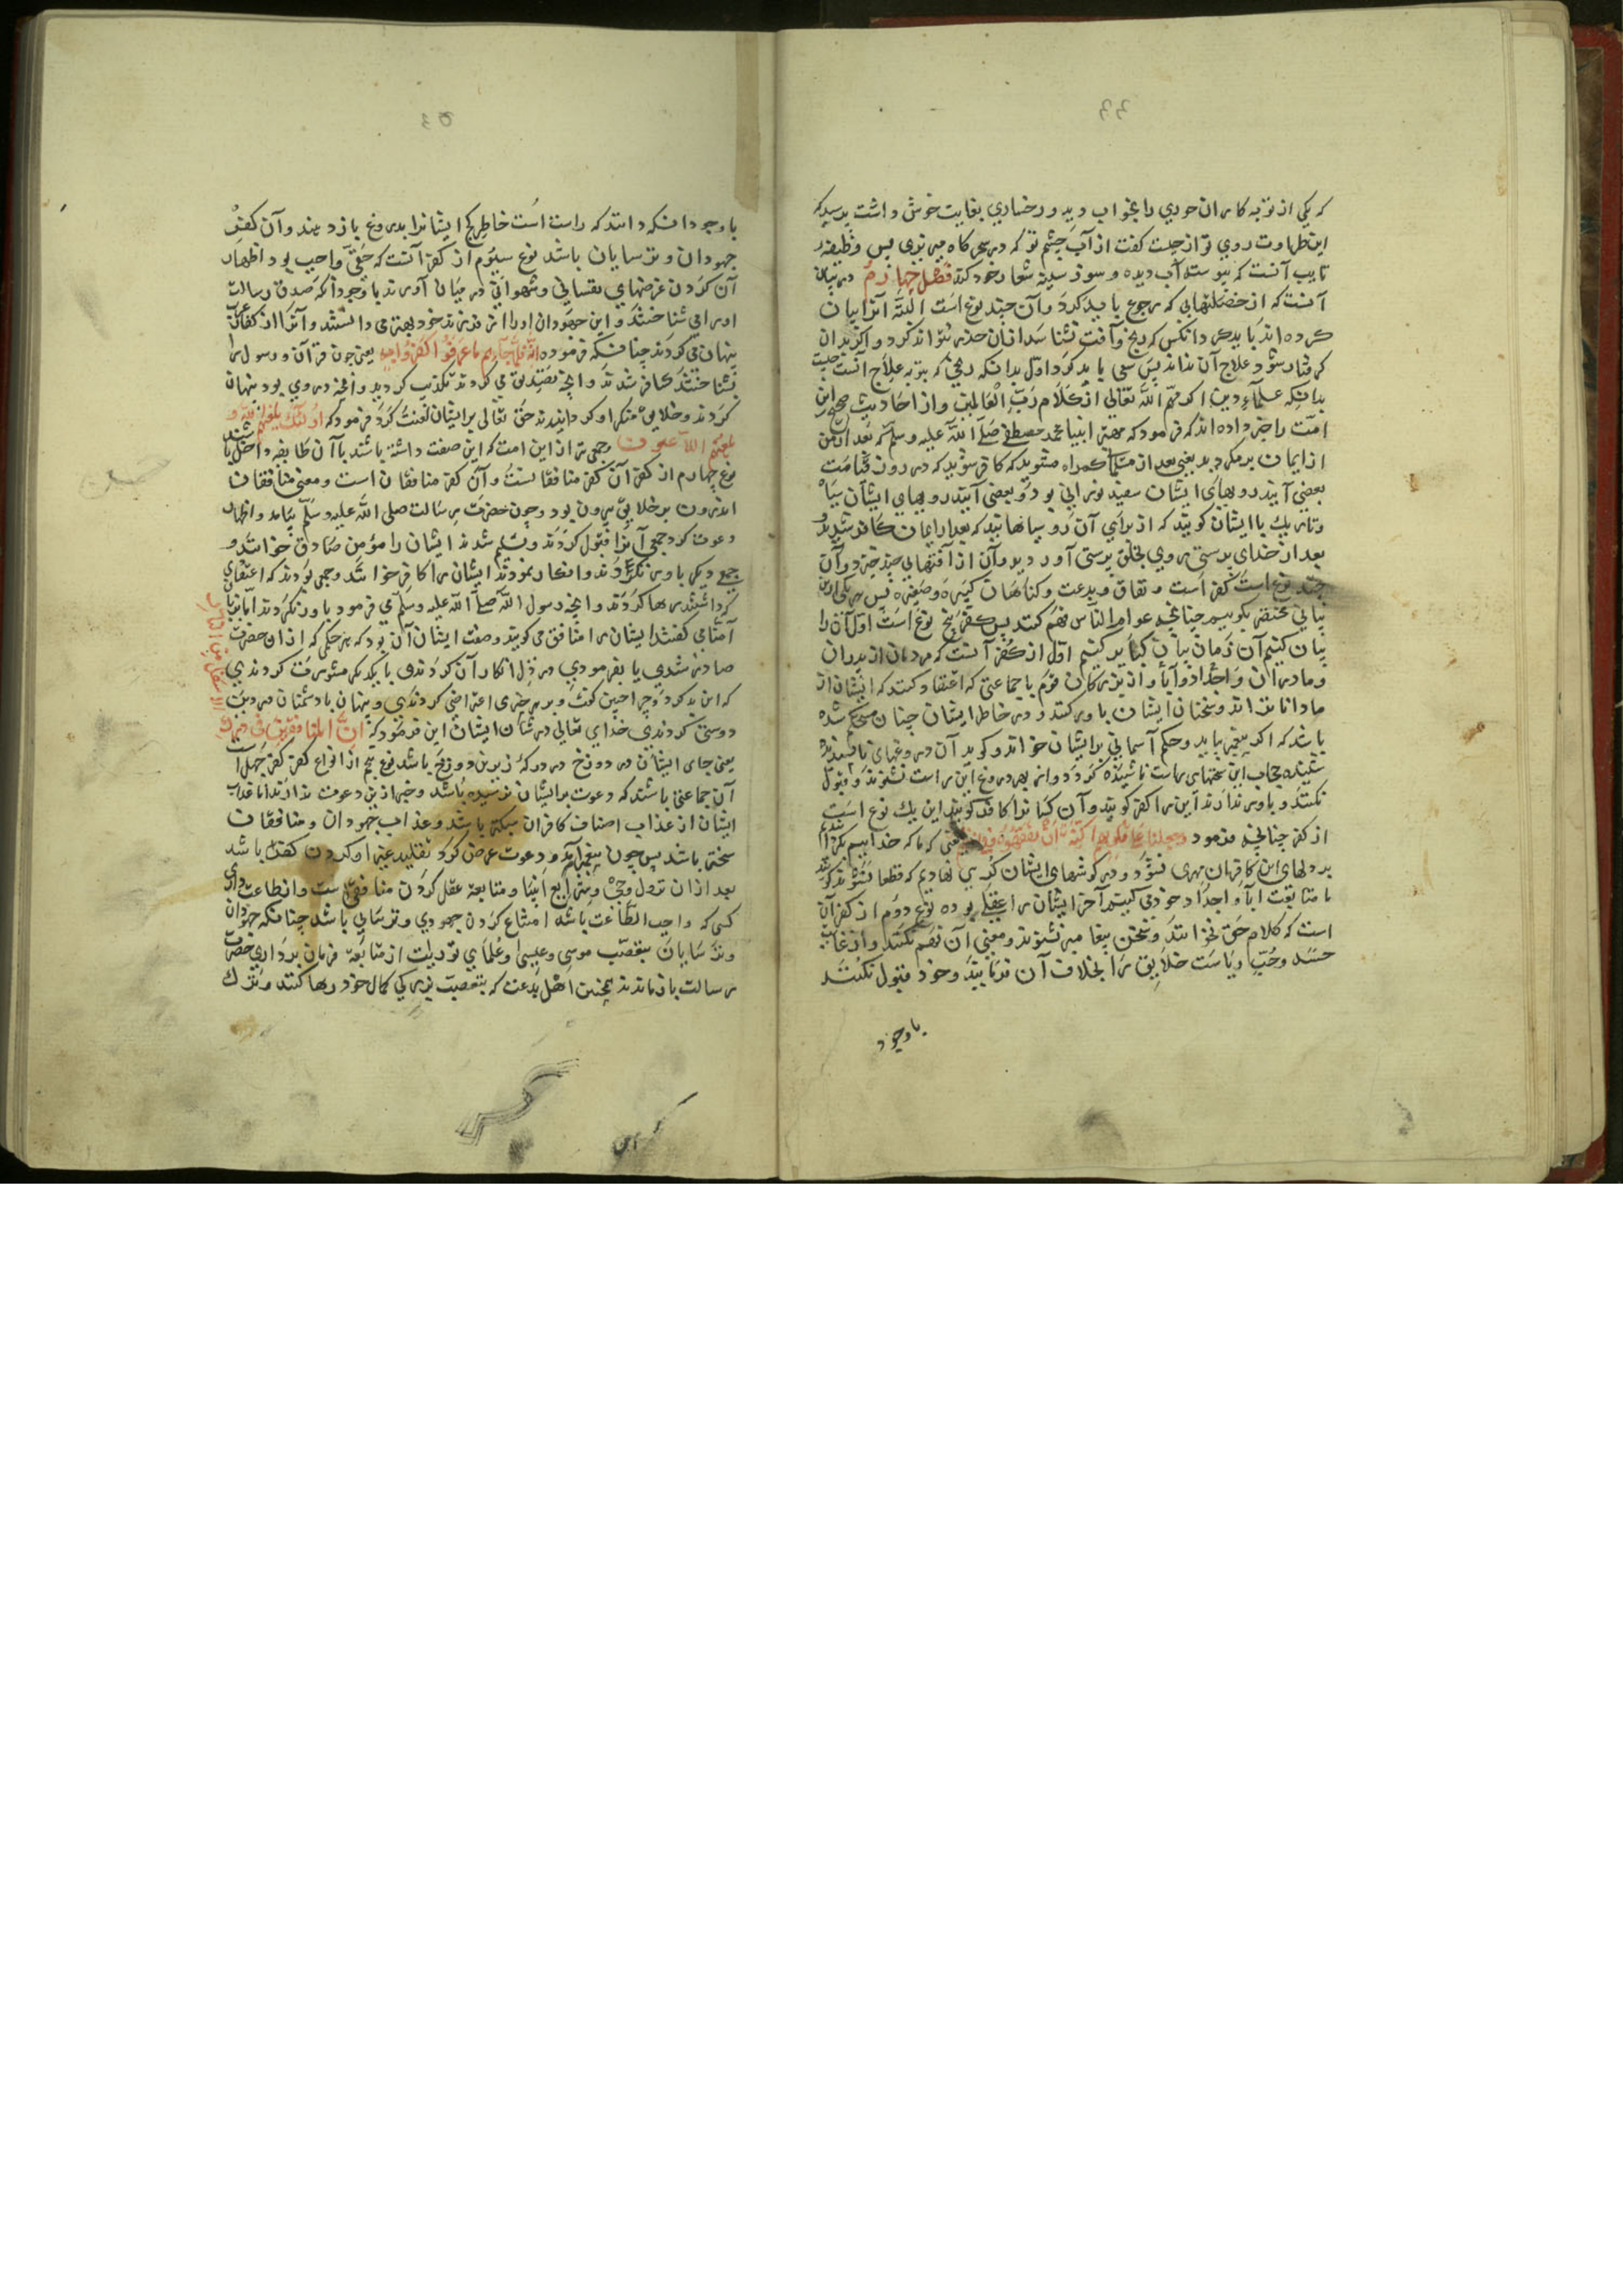 که یکی از توبه کاران حوری را بخواب دید و رخساری بغایت خوش داشت پرسید که
این طراوت روی تو از چیست گفت از آب چشم تو که در سحرگاه میریزی پس وظیفه
تایب آنست که پیوسته آب دیده و سوز سینه شعار خود کند فصل چهارم در بیان
آنست که از خصلتهایی که رجوع باید کرد و آن چند نوع است آنرا بیان
کرده اند باید که دانکس که رنج و آفت نشناسد از آن حذر نتواند کرد و اگر بدان
گرفتار شود علاج آن نداند پس سعی باید کرد اول بدانکه رنجی که بتر به علاج آنست چیست
بدانکه علماء دین اکرمهم الله تعالی از کلام رب العالمین و از احادیث صحیح این
امت را خبر داده اند که فرمود که مهتر انبیا محمد مصطفی صلی الله علیه وسلم که بعد از من
از ایمان برمگردید یعنی بعد از گمراه مشوید که کافر شوید که در روز قیامت
بعضی آیند رویهای ایشان سفید نورانی بود و بعضی آیند رویهای ایشان سیاه
و تاریک با ایشان گویند که از برای آن رو سیاهانید که بعد از ایمان کافر شدید و
بعد از خدای پرستی روی بخلق پرستی آوردید و آن از آفتهایی چند خیزد و آن
چند نوع است کفر است و نفاق و بدعت و گناهان کبیره و صغیره پس هر یکی از این
بیانی مختصر بگوییم چنانچه عوام الناس فهم کنند پس کفر پنج نوع است اول آنرا
بیان کنیم آن زمان بیان کبایر کنیم اول از کفر آنست که مردمان از پدران
و مادران و اجداد و آبا و از بزرگان قوم با جماعتی که اعتقاد کنند که ایشان از
ما داناتراند و سخنان ایشان باور کنند و در خاطر ایشان چنان مستحکم شده
باشد که اگر پیغمبر بیاید و حکم آسمانی بر ایشان خواند و گوید آن دروغهای ناپسندیده
شنیده حجاب این سخنهای راست ناشنیده گردد و از بهر دروغ این راست نشنوند و قبول
نکنند و باور ندارند این را کفر گویند و آن کسانرا کافر گویند این یک نوع است
از کفر چنانچه فرمود وجعلنا علی قلوبهم اکنة ان یفقهوه یعنی که ما که خداییم
بر دلهای این کافران مهری و در گوشهای ایشان کری نهادیم که قطعا نشنوند
ما متابعت آبا و اجداد خود می کنیم آخر ایشان را عقلی بوده نوع دوم از کفر آن
است که کلام حق بخوانند و سخن پیغامبر بشنوند و معنی آن فهم نکنند و از غایت
حسد و حب ریاست خلایق را بخلاف آن فرمایند و خود قبول نکنند
باوجود
باوجود آنکه دانند که راست است خاطر کج ایشانرا بدروغ باز دهند و آن کفر
جهودان و ترسایان باشد نوع سیوم از کفر آنست که حقی واجب بود اظهار
آن کردن غرضهای نفسانی و شهوانی در میان آورند با وجود آنکه صدق رسالت
او را می شناختند و این جهودان او را از فرزند خود بهتر می دانستند و آنرا از کفار
پنهان می کردند چنانکه فرموده فلما جاءهم ما عرفوا کفروا به یعنی چون قرآن و رسول را
بشناختند کافر شدند و آنچه تصدیق می کردند تکذیب کردید و آنچه در وی بود پنهان
کردند و خلایق را منکر او گردانیدند حق تعالی بر ایشان لعنت کرد فرمود که اولئک یلعنهم الله و
یلعنهم اللاعنون و جمعی نیز از این امت که این صفت داشته باشند با آن طایفه داخل باشند
نوع چهارم از کفر آن کفر منافقانست و آن کفر منافقان است و معنی منافقان
اندرون بر خلاف بیرون بود و چون حضرت رسالت صلی الله علیه وسلم بیامد و اظهار
دعوت کرد جمعی آنرا قبول کردند و تسلیم شدند ایشان را مؤمن صادق خوانند و
جمع دیگر باور نکردند و انکار نمودند ایشان را کافر خوانند و جمعی بودند که اعتقادی
که داشتند رها کردند و آنچه رسول الله صلی الله علیه وسلم می فرمود باور نکردند اما بزبان
آمنا می گفتند ایشان را منافق می گویند وصفت ایشان آن بود که هر حکمی که از آن حضرت
صادر شدی یا بفرمودی در دل انکار آن کردندی با یکدیگر مشورت کردندی
که این بد کرد و چرا چنین گفت و بر هر چیزی اعتراض کردندی و پنهان با دشمنان دین
دوستی کردندی خدای تعالی در شان ایشان این فرمود که ان المنافقین فی الدرک
الاسفل من النار
یعنی جای ایشان در دوزخ در درکه زیرین دوزخ باشد نوع پنجم از انواع کفر کفر جهل است
آن جماعتی باشند که دعوت بر ایشان نرسیده باشد و خبر از دین دعوت ندارند اما عذاب
ایشان از عذاب اصناف کافران سبکتر باشد و عذاب جهودان و منافقان
سختر باشد پس چون پیغمبر آمد و دعوت عرض کرد تقلید غیر او کردن کفر باشد
بعد از آن نزول وحی و شرایع انبیا و متابعة عقل کردن منافقی است و از طاعت داری
کسی که واجب الطاعت باشد امتناع کردن جهودی و ترسایی باشد چنانکه جهودان
و ترسایان بتعصب موسی و عیسی و علمای توریت از متابعة فرمان برداری حضرت
رسالت باز ماندند همچنین اهل بدعت که بتعصب بزرگی کمال خود رها کنند و ترک